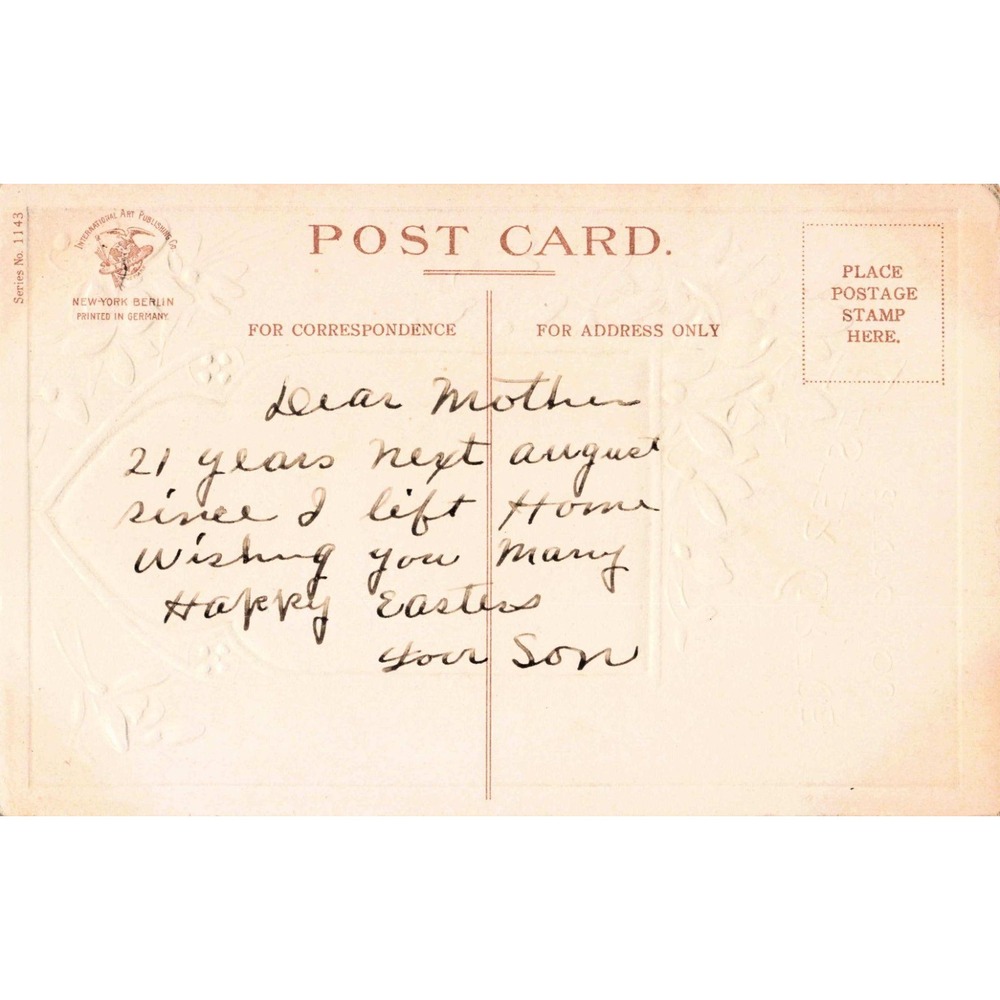 Series No. 1143
INTERNATIONAL ART PUBLISHING Co
NEW-YORK BERLIN
PRINTED IN GERMANY
POST CARD.
FOR CORRESPONDENCE
FOR ADDRESS ONLY
PLACE
POSTAGE
STAMP
HERE.
Dear Mother
21 years next august
since I lift Home
Wishing you Many
Happy Easters
Your Son